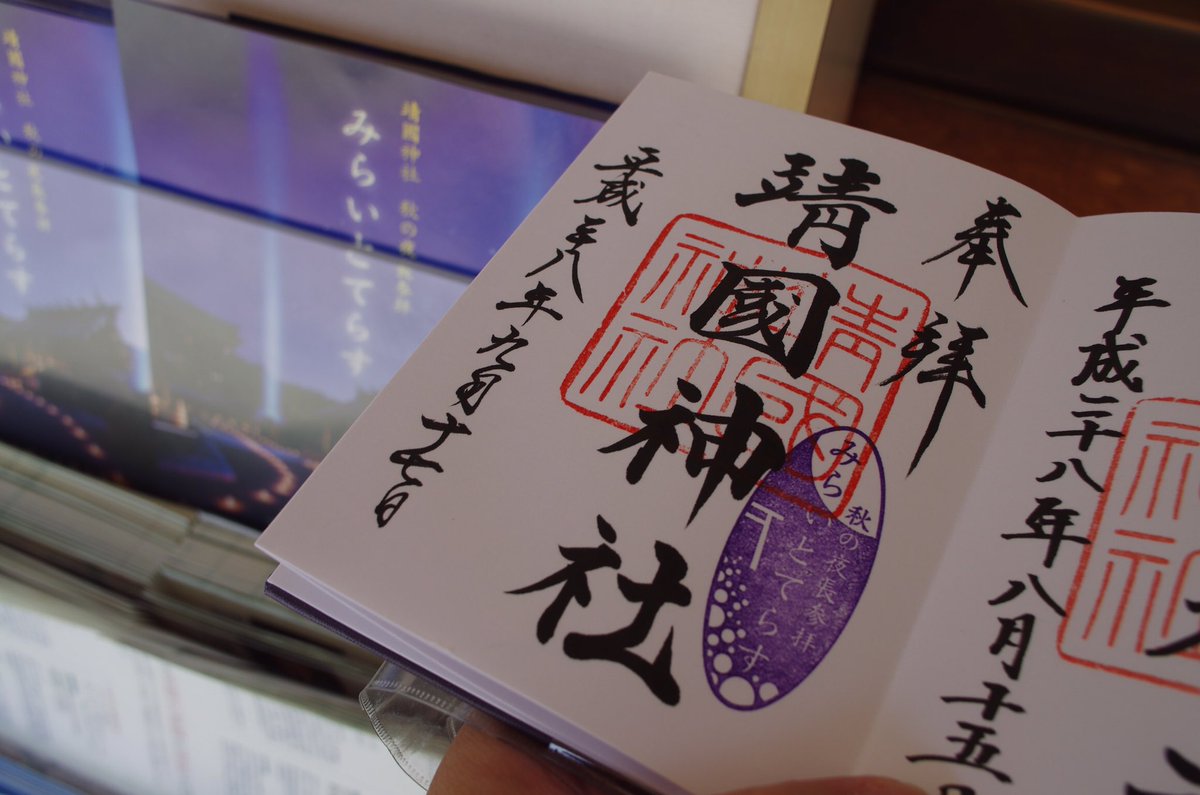 平成二十八年八月十五日
奉拝
靖國神社
平成廿八年九月十七日
靖國神社
秋の夜長参拝
みらいとてらす
靖國神社 秋の夜長参拝
みらいとてらす
靖國神社
とてらす